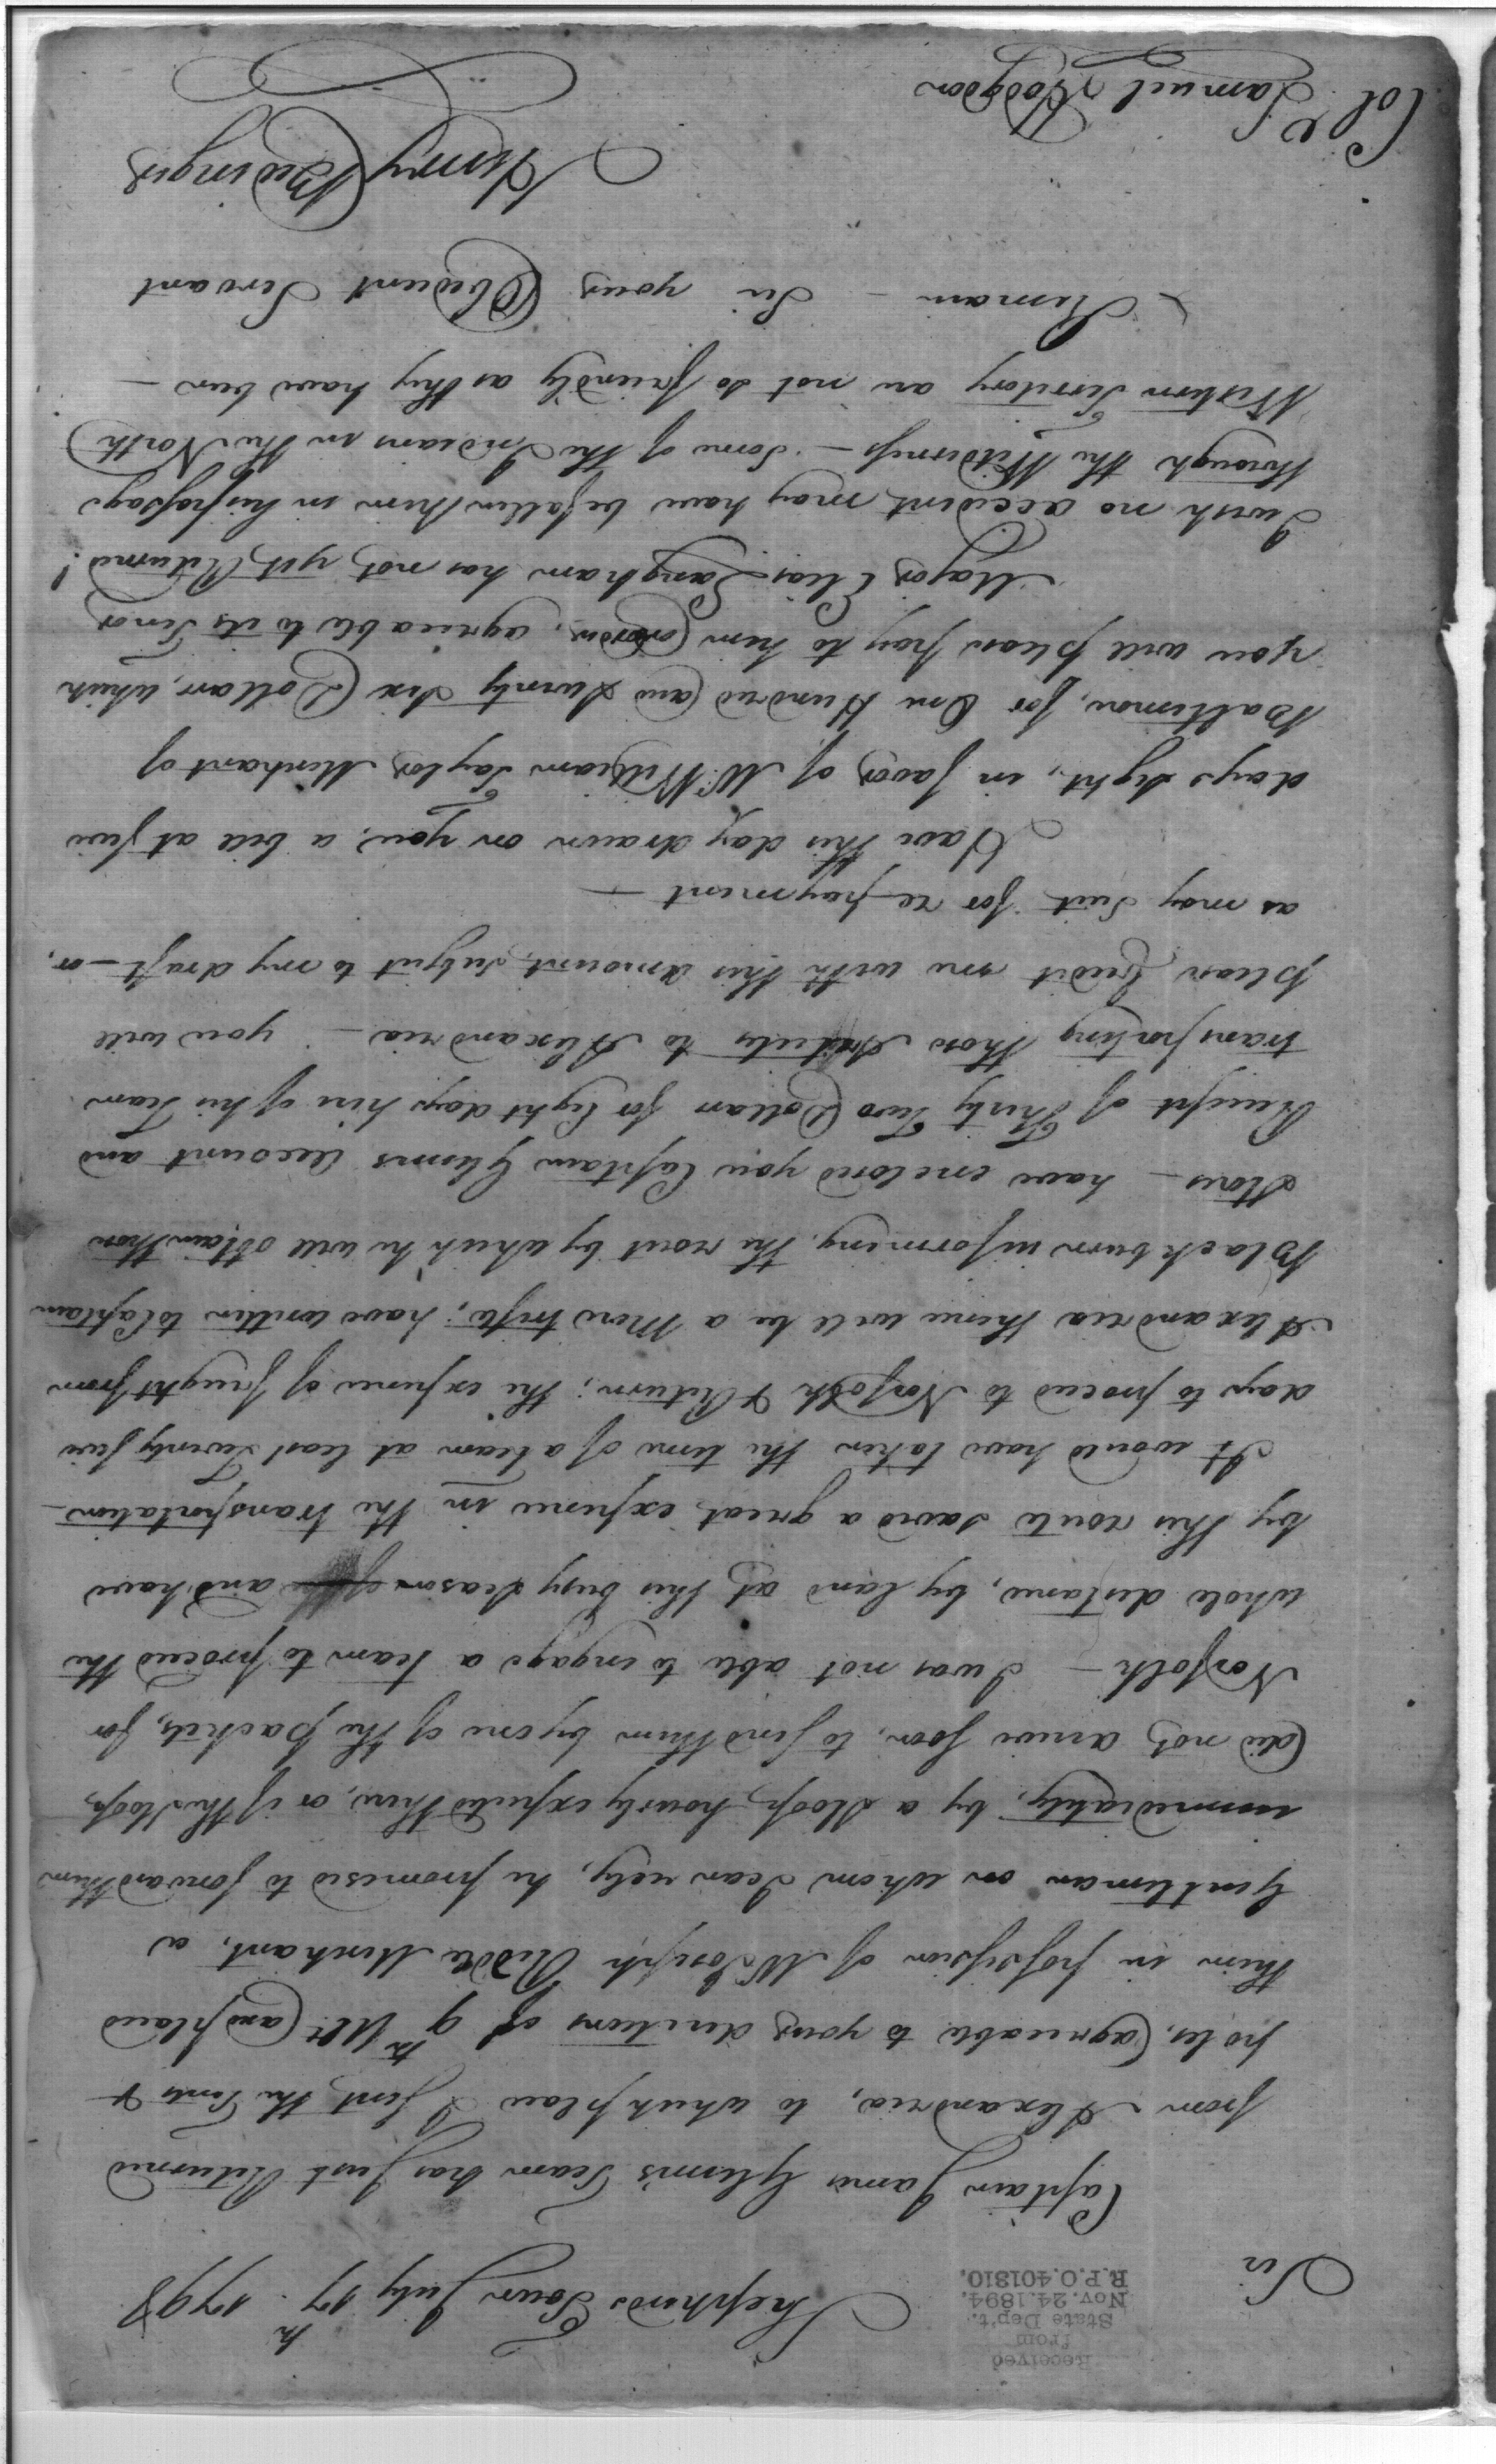 Received
from
State Dep't.
Nov. 24. 1894.
R.P.O. 401310.
Shepherds Town July 17th 1798
Sir
Captain James Glenn's Team has Just Returned
from Alexandria, to which place I sent the Tents &
poles, agreeable to your directions of 9th Ult: and placed
them in possession of Mr Joseph Riddle Merchant, a
Gentleman on whom I can rely, he promised to forward them
immediately, by a Sloop, hourly expected there, or if the Sloop,
did not arrive soon, to send them by one of the packets, for
Norfolk — I was not able to engage a team to proceed the
whole distance, by land at this busy Season and have
by this route saved a great expence in the transportation—
It would have taken the time of a team at least Twenty five
days to proceed to Norfolk & Return; the expence of freight from
Alexandria there will be a Mere trifle; have written to Captain
Blackburn informing, the rout by which he will obtain those
Stores — have enclosed you Captain Glenns Account and
Receipt of Thirty Two Dollars for Eight days hire of his Team
transporting those Articles to Alexandria — you will
please Credit me with this Amount, Subject to my draft — or,
as may Suit for re-payment —
Have this day drawn on you, a bill at five
days sight, in favor of Mr William Taylor Merchant of
Baltimore, for One Hundred and Seventy Six Dollars, which
you will please pay to him or order, agreeable to its Tenor
Major Elias Langham has not yet Returned!
I wish no accident may have befallen him in his passage
through the Wilderness — Some of the Indians in the North
Western Territory are not so friendly as they have been —
I Remain — Sir your Obedient Servant
Henry Bedinger
Col. Samuel Hodgdon